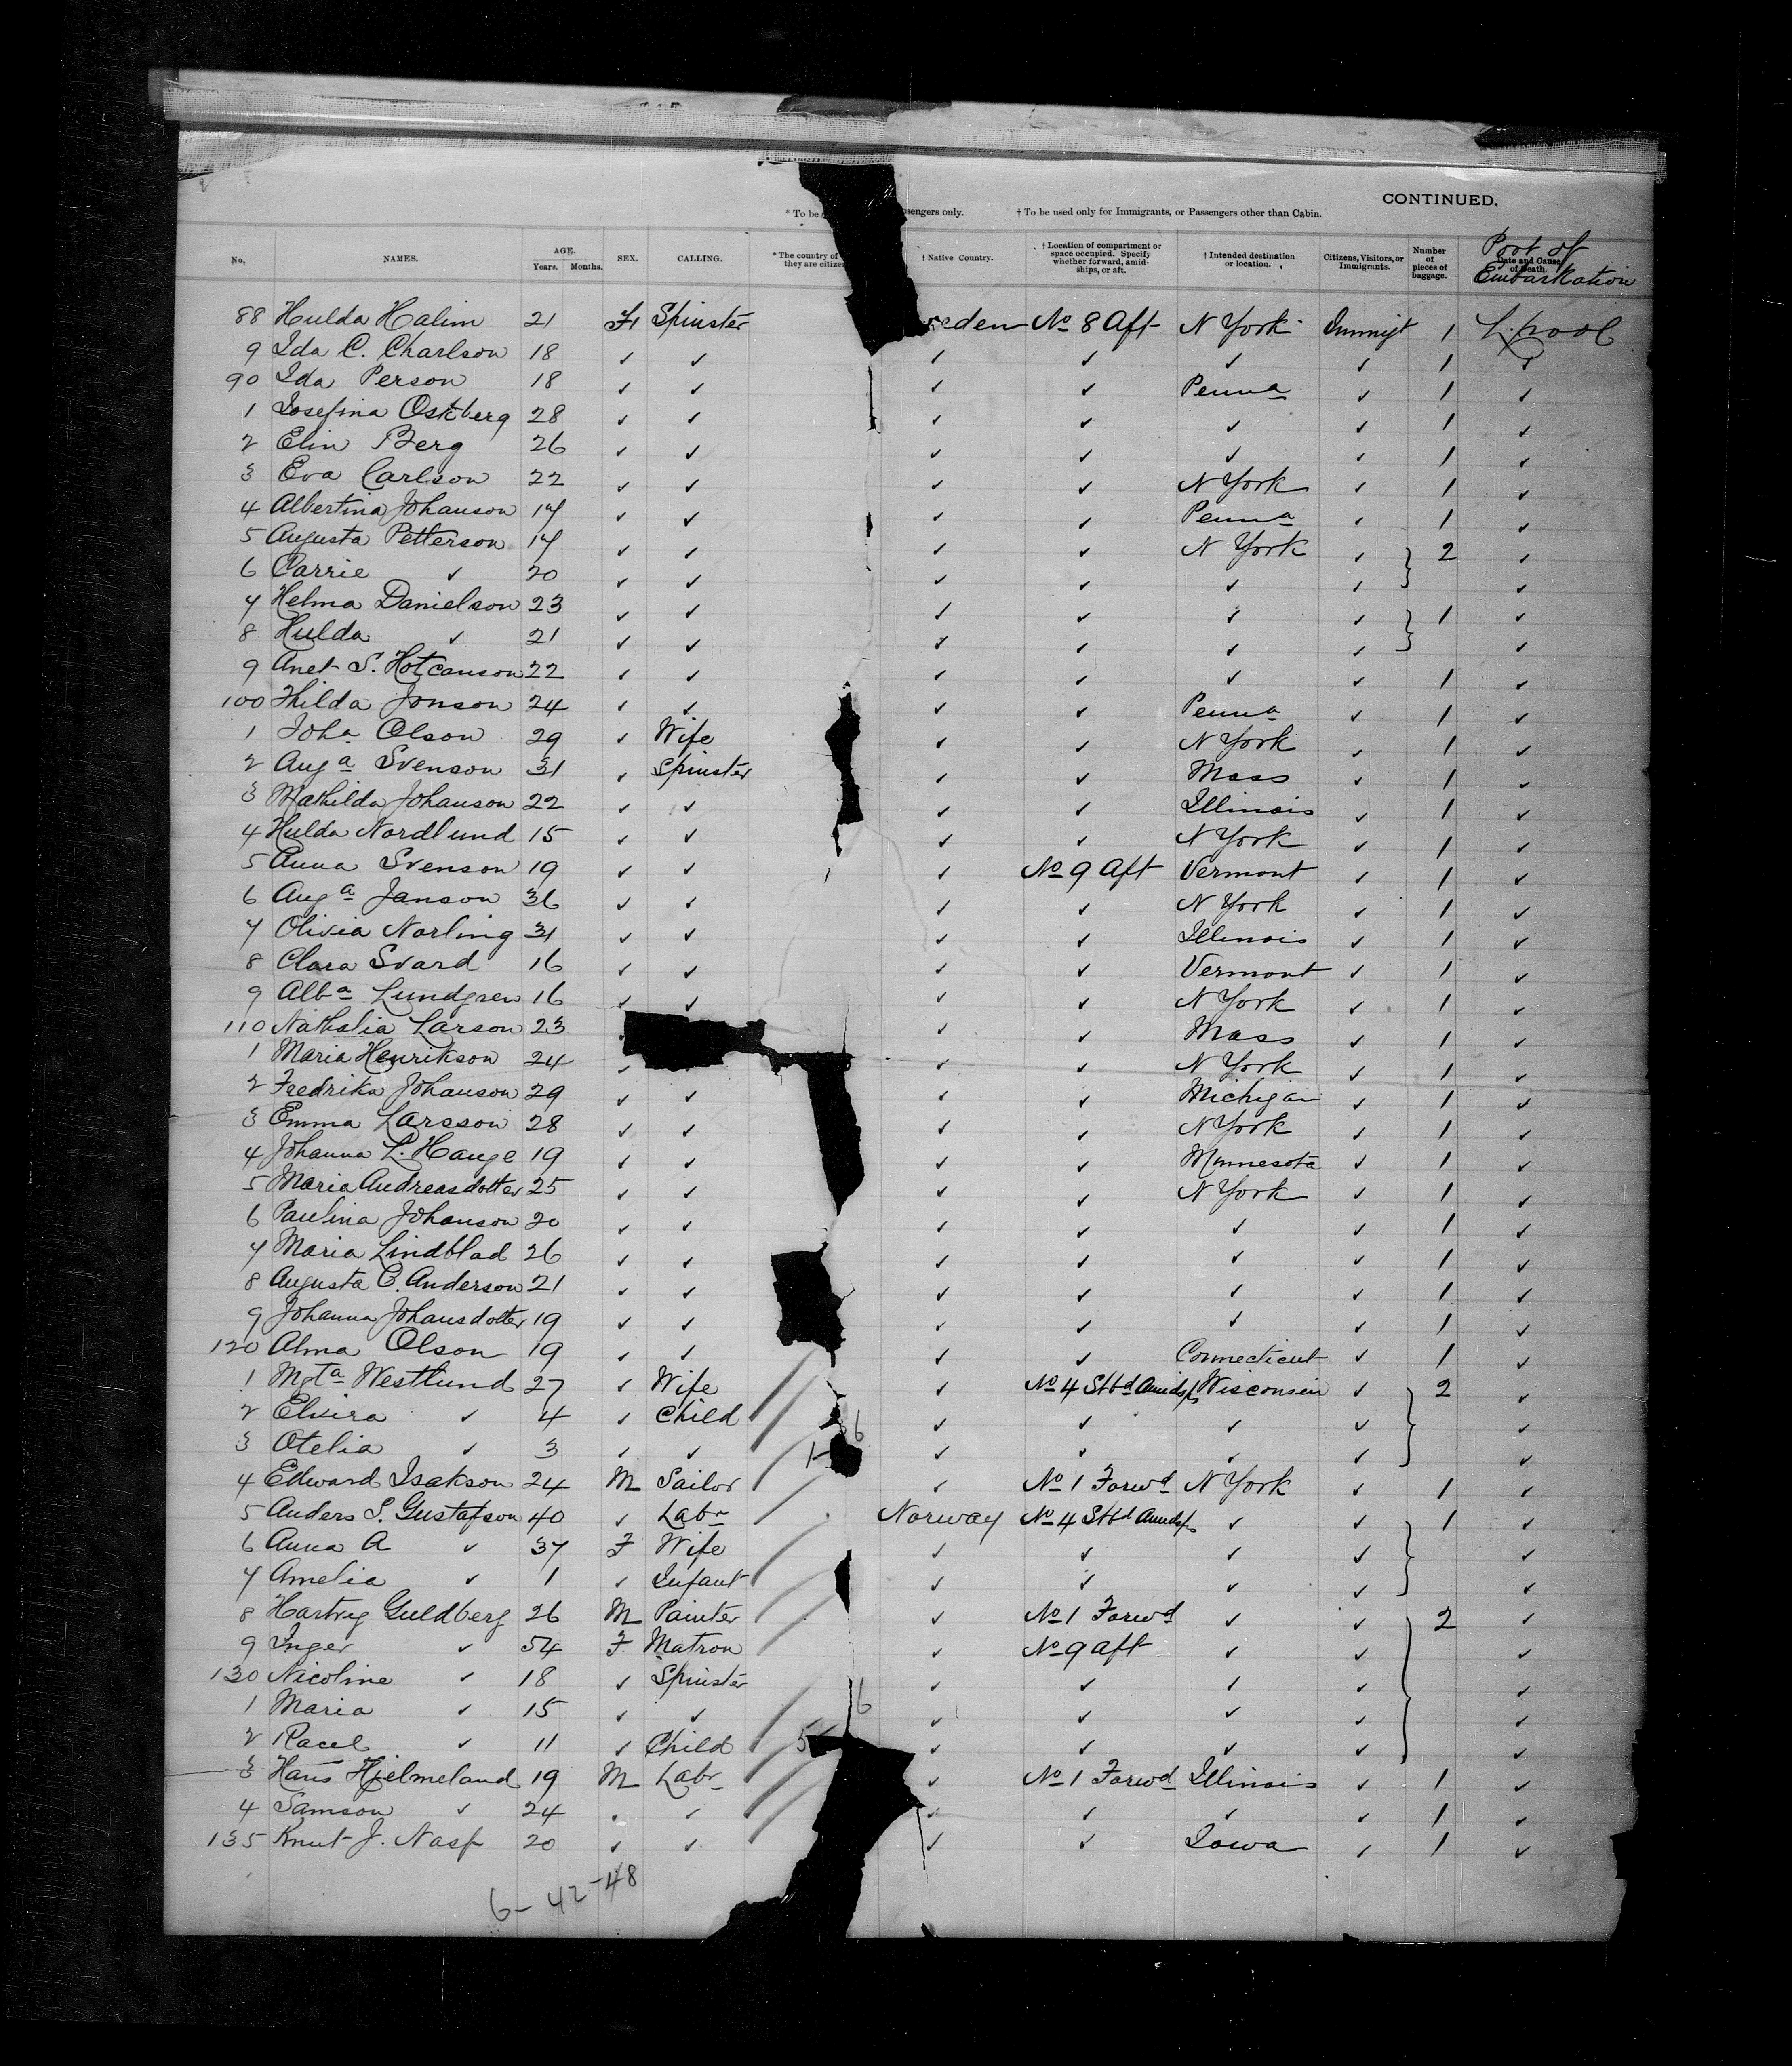 CONTINUED.
* To be ssengers only. † To be used only for Immigrants, or Passengers other than Cabin.
No. NAMES. AGE. Years. Months. SEX. CALLING. * The country of they are citize † Native Country. † Location of compartment or space occupied. Specify whether forward, amidships, or aft. † Intended destination or location. Citizens, Visitors, or Immigrants. Number of pieces of baggage. Date and Cause of Death. Port of Embarkation
88 Hulda Halim 21 F Spinster eden No 8 Aft N York Immigt 1 L.pool
9 Ida C. Charlson 18 ✓ ✓ ✓ ✓ ✓ ✓ 1 ✓
90 Ida Person 18 ✓ ✓ ✓ ✓ Penna ✓ 1 ✓
1 Josefina Ostberg 28 ✓ ✓ ✓ ✓ ✓ ✓ 1 ✓
2 Elin Berg 26 ✓ ✓ ✓ ✓ ✓ ✓ 1 ✓
3 Eva Carlson 22 ✓ ✓ ✓ ✓ N York ✓ 1 ✓
4 Albertina Johanson 17 ✓ ✓ ✓ ✓ Penna ✓ 1 ✓
5 Augusta Petterson 17 ✓ ✓ ✓ ✓ N York ✓ } 2 ✓
6 Carrie ✓ 20 ✓ ✓ ✓ ✓ ✓ ✓ ✓
7 Helma Danielson 23 ✓ ✓ ✓ ✓ ✓ ✓ } 1 ✓
8 Hulda ✓ 21 ✓ ✓ ✓ ✓ ✓ ✓ ✓
9 Anet S. 22 ✓ ✓ ✓ ✓ ✓ ✓ 1 ✓
100 Thilda Jonson 24 ✓ ✓ ✓ ✓ Penna ✓ 1 ✓
1 Joha Olson 29 ✓ Wife ✓ ✓ N York ✓ 1 ✓
2 Auga Svenson 31 ✓ Spinster ✓ ✓ Mass ✓ 1 ✓
3 Mathilda Johanson 22 ✓ ✓ ✓ ✓ Illinois ✓ 1 ✓
4 Hulda Nordlund 15 ✓ ✓ ✓ ✓ N York ✓ 1 ✓
5 Anna Svenson 19 ✓ ✓ ✓ No 9 Aft Vermont ✓ 1 ✓
6 Auga Janson 36 ✓ ✓ ✓ ✓ N York ✓ 1 ✓
7 Olivia Norling 31 ✓ ✓ ✓ ✓ Illinois ✓ 1 ✓
8 Clara Svard 16 ✓ ✓ ✓ ✓ Vermont ✓ 1 ✓
9 Alba Lundgren 16 ✓ ✓ ✓ ✓ N York ✓ 1 ✓
110 Nathalia Larson 23 ✓ ✓ Mass ✓ 1 ✓
1 Maria Henrikson 24 ✓ ✓ ✓ N York ✓ 1 ✓
2 Fredrika Johanson 29 ✓ ✓ ✓ ✓ Michigan ✓ 1 ✓
3 Emma Larsson 28 ✓ ✓ ✓ ✓ N York ✓ 1 ✓
4 Johanna L. Hauge 19 ✓ ✓ ✓ ✓ Minnesota ✓ 1 ✓
5 Maria Andreasdotter 25 ✓ ✓ ✓ ✓ N York ✓ 1 ✓
6 Paulina Johanson 20 ✓ ✓ ✓ ✓ ✓ ✓ 1 ✓
7 Maria Lindblad 26 ✓ ✓ ✓ ✓ ✓ ✓ 1 ✓
8 Augusta C. Anderson 21 ✓ ✓ ✓ ✓ ✓ ✓ 1 ✓
9 Johanna Johansdotter 19 ✓ ✓ ✓ ✓ ✓ ✓ 1 ✓
120 Alma Olson 19 ✓ ✓ ✓ ✓ Connecticut ✓ 1 ✓
1 Mgta Westlund 27 ✓ Wife ✓ No 4 Stbd Amidsps Wisconsin ✓ } 2 ✓
2 Elvira ✓ 4 ✓ Child 6 ✓ ✓ ✓ ✓ ✓
3 Otelia ✓ 3 ✓ ✓ 1- ✓ ✓ ✓ ✓ ✓
4 Edward Isakson 24 M Sailor ✓ No 1 Forwd N York ✓ 1 ✓
5 Anders S. Gustafson 40 ✓ Labr Norway No 4 Stbd Amidsps ✓ ✓ } 1 ✓
6 Anna A ✓ 37 F Wife ✓ ✓ ✓ ✓ ✓
7 Amelia ✓ 1 ✓ Infant ✓ ✓ ✓ ✓ ✓
8 Hartvig Guldberg 26 M Painter ✓ No 1 Forwd ✓ ✓ } 2 ✓
9 Inger ✓ 54 F Matron ✓ No 9 aft ✓ ✓ ✓
130 Nicoline ✓ 18 ✓ Spinster ✓ ✓ ✓ ✓ ✓
1 Maria ✓ 15 ✓ ✓ 6 ✓ ✓ ✓ ✓ ✓
2 Racel ✓ 11 ✓ Child 5 ✓ ✓ ✓ ✓ ✓
3 Hans Hjelmeland 19 M Labr ✓ No 1 Forwd Illinois ✓ 1 ✓
4 Samson ✓ 24 ✓ ✓ ✓ ✓ ✓ ✓ 1 ✓
135 Knut J. 20 ✓ ✓ ✓ ✓ Iowa ✓ 1 ✓
6-42-48